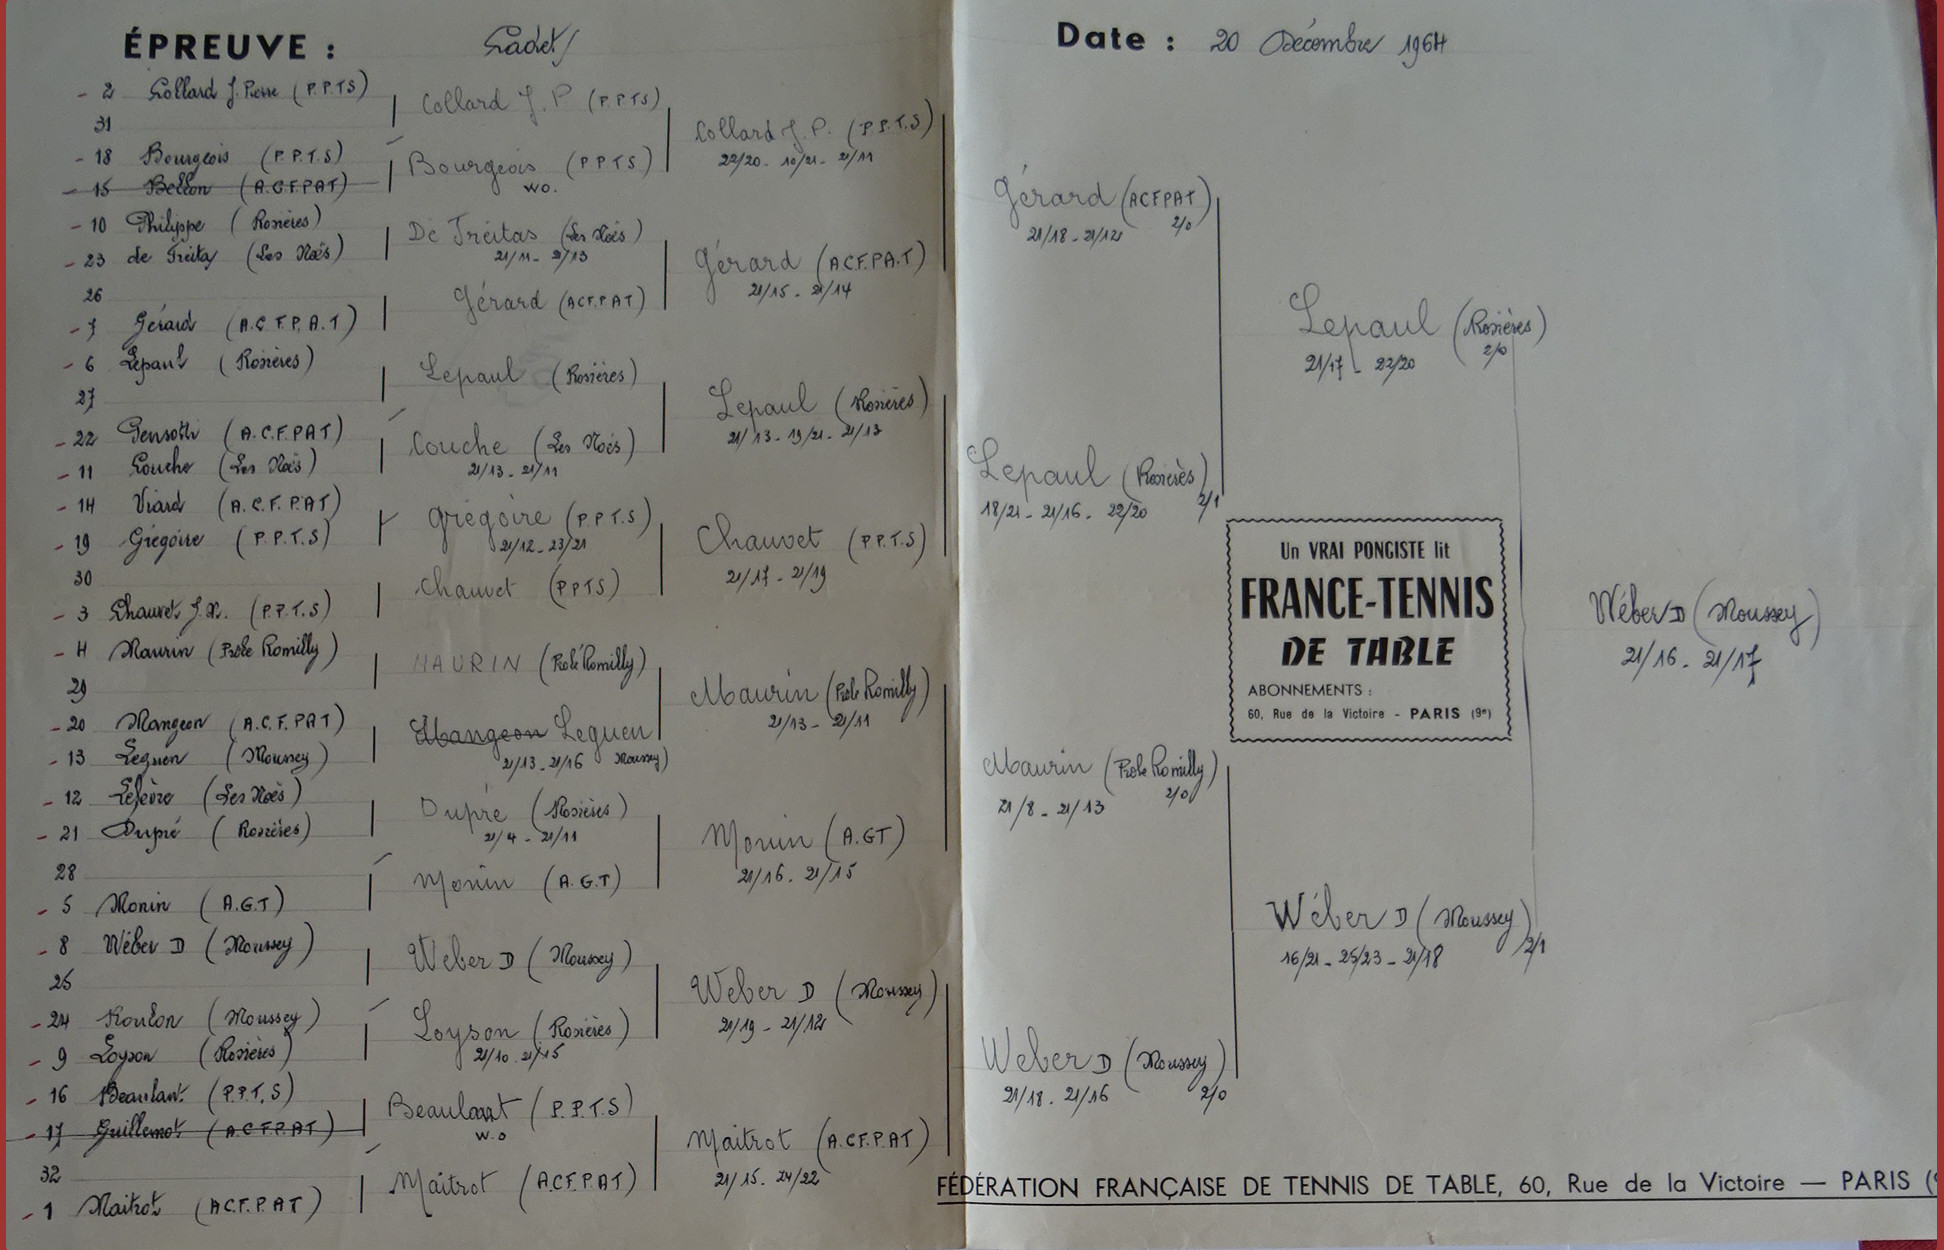 ÉPREUVE : Cadets
Date : 20 Décembre 1964
- 2 Collard J. Pierre (P.P.T.S)
31
- 18 Bourgeois (P.P.T.S)
- 15 Bellon (A.C.F.PAT)
- 10 Philippe (Rosières)
- 23 de Freitas (Les Noës)
26
- 7 Gérard (A.C.F.P.A.T)
- 6 Lepaul (Rosières)
27
- 22 (A.C.F.PAT)
- 11 Couche (Les Noës)
- 14 Viard (A.C.F.PAT)
- 19 Grégoire (P.P.T.S)
30
- 3 Chauvet (P.P.T.S)
- 4 Maurin (Prole Romilly)
29
- 20 Mangeon (A.C.F.PAT)
- 13 Leguen (Moussey)
- 12 Lefèvre (Les Noës)
- 21 Dupré (Rosières)
28
- 5 Monin (A.G.T)
- 8 Wéber D (Moussey)
25
- 24 (Moussey)
- 9 Loyson (Rosières)
- 16 Beaulant (P.P.T.S)
- 17 Guillemot (A.C.F.PAT)
32
- 1 Maitrot (A.C.F.P.A.T)
Collard J. P (P.P.T.S)
Bourgeois (P.P.T.S)
W.O.
De Freitas (Les Noës)
21/11 - 21/13
Gérard (A.C.F.P.A.T)
Lepaul (Rosières)
Couche (Les Noës)
21/13 - 21/11
Grégoire (P.P.T.S)
21/12 - 23/21
Chauvet (P.P.T.S)
MAURIN (Prole Romilly)
Mangeon Leguen
21/13 - 21/16 Moussey)
Dupré (Rosières)
21/4 - 21/11
Monin (A.G.T)
Weber D (Moussey)
Loyson (Rosières)
21/10 - 21/15
Beaulant (P.P.T.S)
W.O
Maitrot (A.C.F.P.A.T)
Collard J. P. (P.P.T.S)
22/20 - 10/21 - 21/11
Gérard (A.C.F.P.A.T)
21/15 - 21/14
Lepaul (Rosières)
21/13 - 19/21 - 21/13
Chauvet (P.P.T.S)
21/17 - 21/19
Maurin (Prole Romilly)
21/13 - 21/11
Monin (A.GT)
21/16 - 21/15
Weber D (Moussey)
21/19 - 21/12
Maitrot (A.C.F.P.A.T)
21/15 - 24/22
Gérard (A.C.F.P.A.T)
21/18 - 21/12 2/0
Lepaul (Rosières)
18/21 - 21/16 - 22/20 2/1
Maurin (Prole Romilly)
21/8 - 21/13 2/0
Weber D (Moussey)
21/18 - 21/16 2/0
Lepaul (Rosières)
21/17 - 22/20 2/0
Wéber D (Moussey)
16/21 - 25/23 - 21/18 2/1
Wéber D (Moussey)
21/16 - 21/17
Un VRAI PONGISTE lit
FRANCE-TENNIS
DE TABLE
ABONNEMENTS :
60, Rue de la Victoire - PARIS (9e)
FÉDÉRATION FRANÇAISE DE TENNIS DE TABLE, 60, Rue de la Victoire — PARIS (